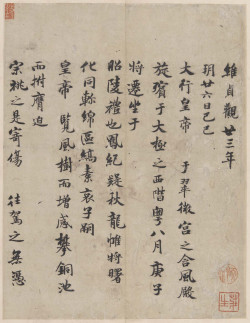 維貞觀廿三年
廿六日己巳
大行皇帝 于翠微宮之含風殿
旋殯于大極之西階粵八月庚子
將遷坐于
昭陵禮也鳳紀秋龍帷將曙
化同綿區縞素哀子嗣
皇帝覽風樹而增感攀銅池
而拊膺迫
宗祧之是寄傷 往駕之無憑